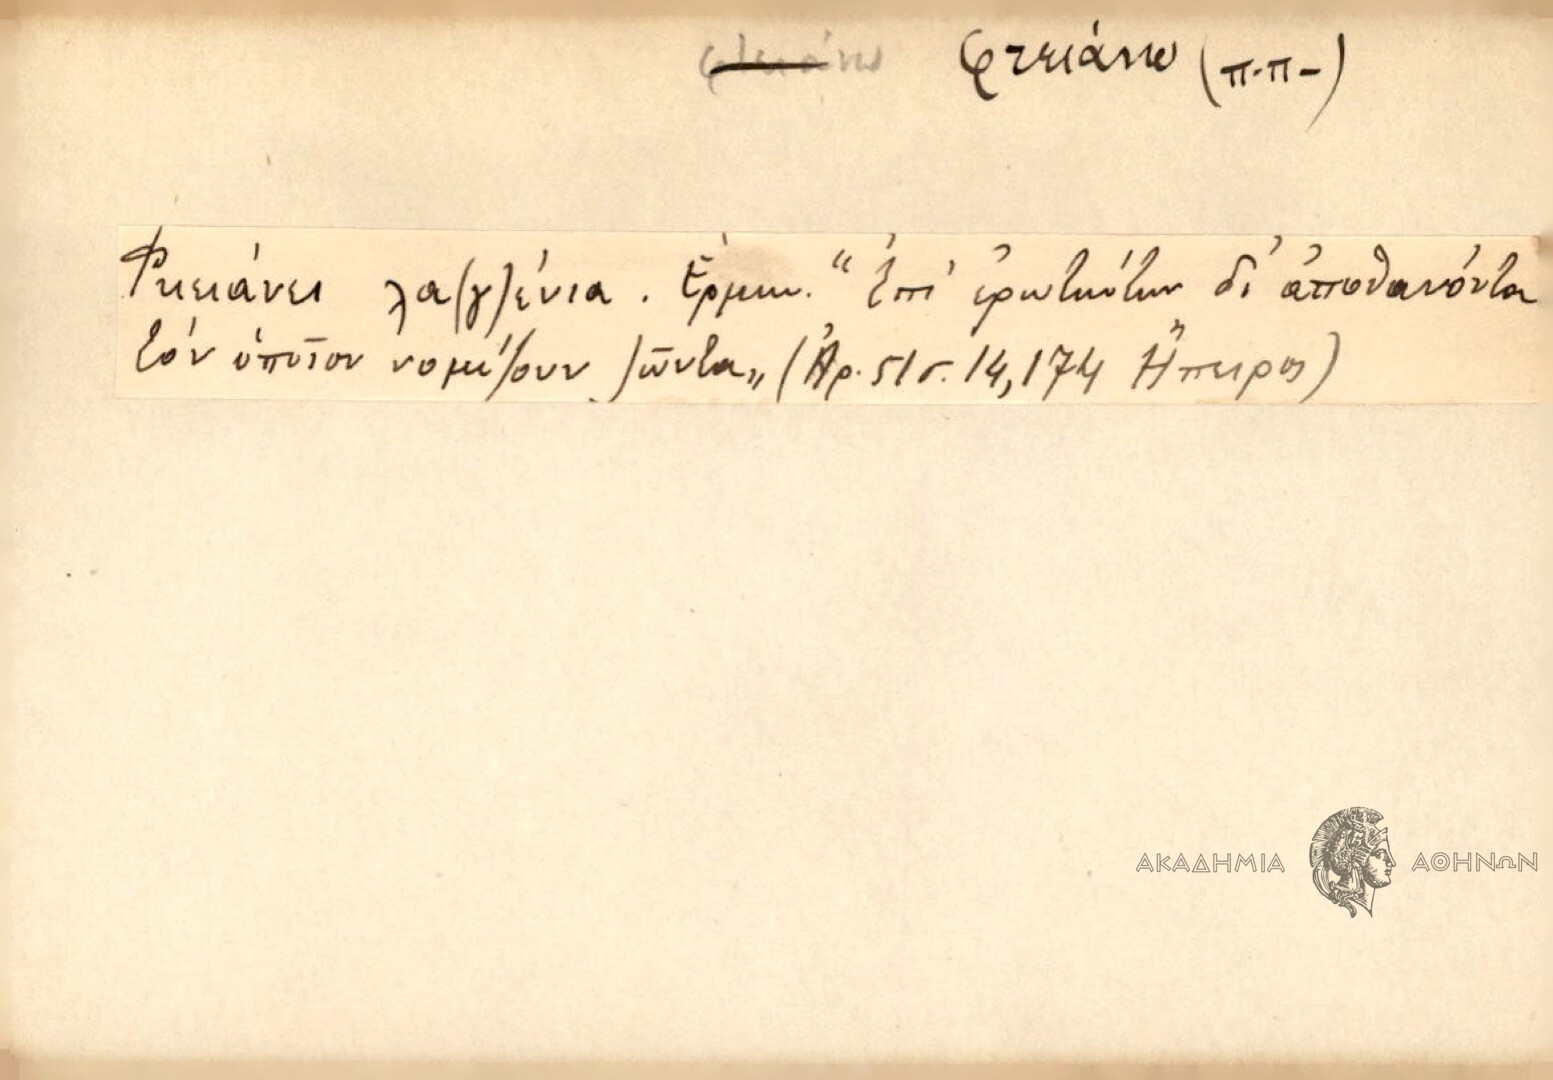 φτειάνω (π.π-)
Φτειάνει λα(γ)ένια. Ἑρμην. "Ἐπί ἐρωτώντων δι' ἀποθανόντα
τόν ὁποῖον νομίζουν ζῶντα„ (Ἀρ. 51 σ. 14, 174 Ἤπειρος)
ΑΚΑΔΗΜΙΑ ΑΘΗΝΩΝ